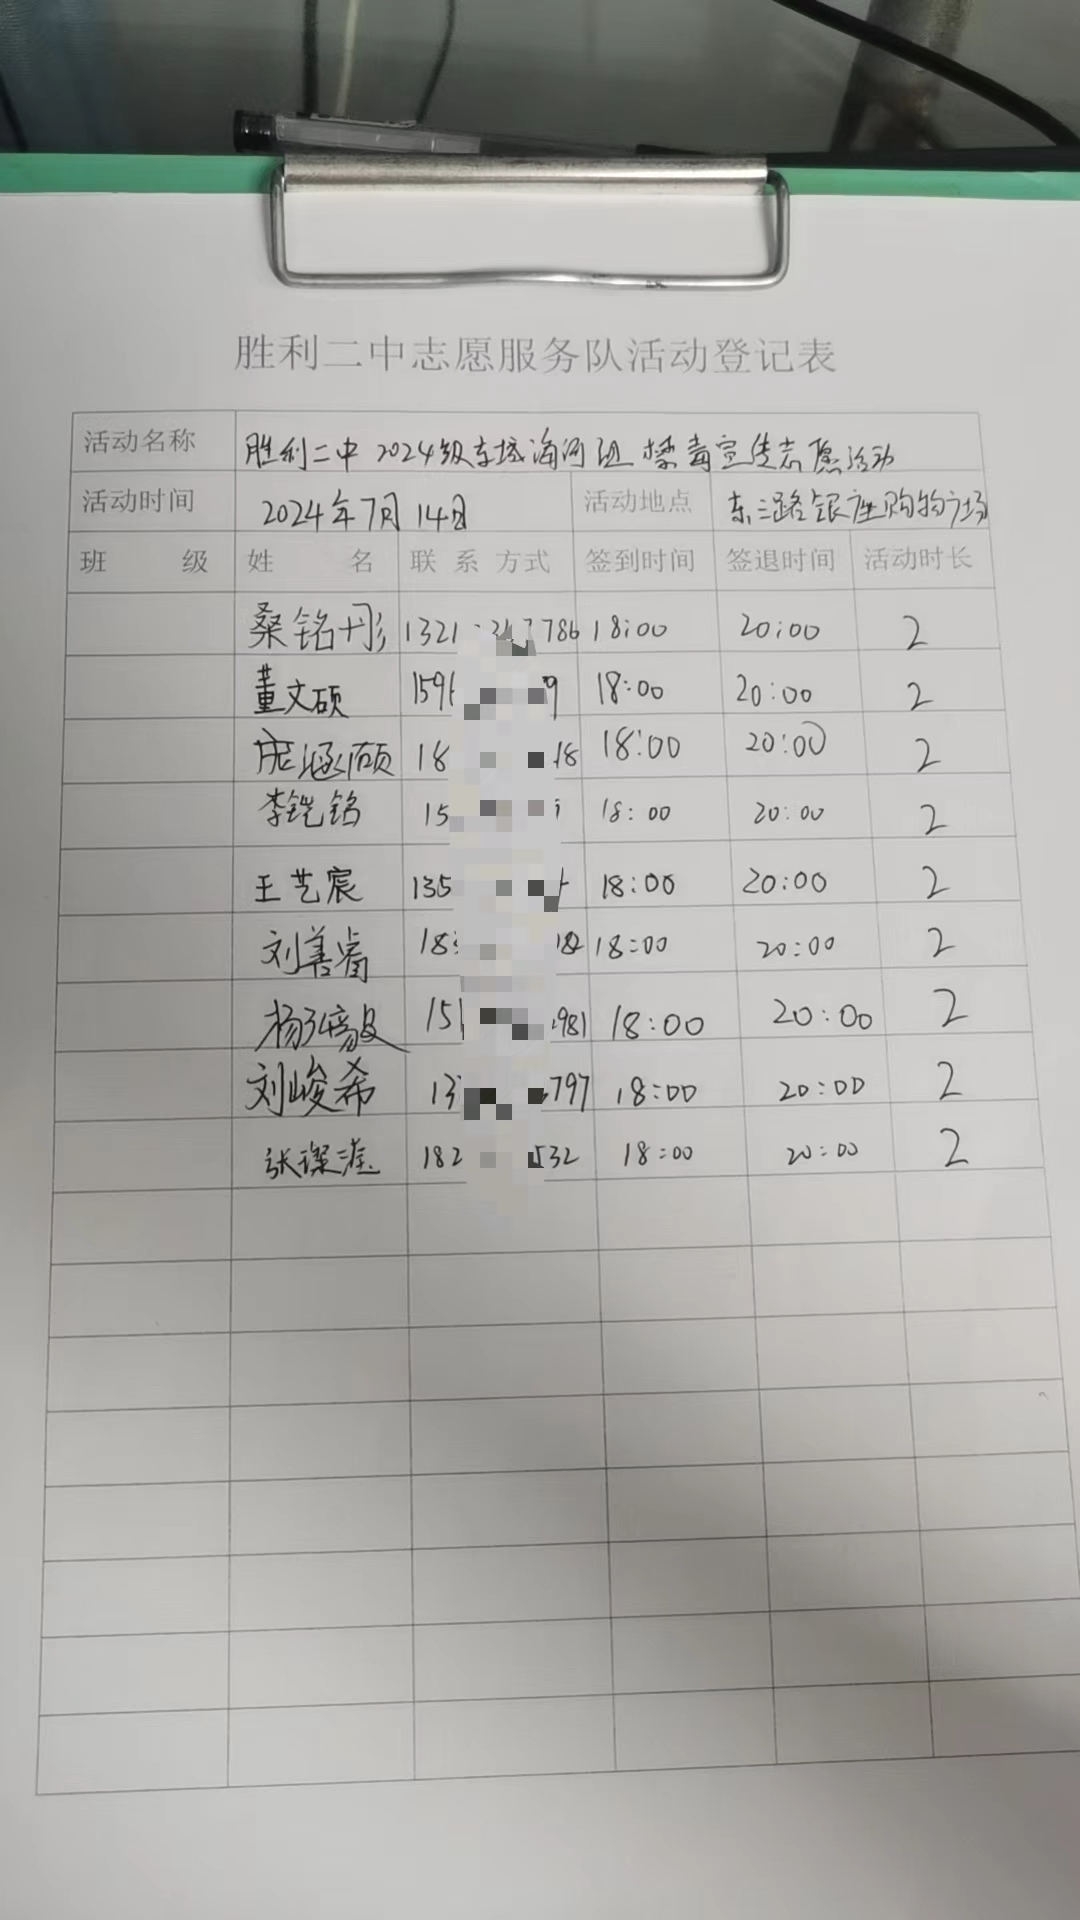 胜利二中志愿服务队活动登记表
活动名称 胜利二中 2024级东城海河班 禁毒宣传志愿活动
活动时间 2024年7月14日 活动地点 东三路银座购物广场
班 级 姓 名 联 系 方式 签到时间 签退时间 活动时长
桑铭彤 18:00 20:00 2
董文硕 18:00 20:00 2
18:00 20:00 2
李铠铭 18:00 20:00 2
王艺宸 18:00 20:00 2
刘善睿 18:00 20:00 2
杨弘毅 18:00 20:00 2
刘峻希 18:00 20:00 2
18:00 20:00 2